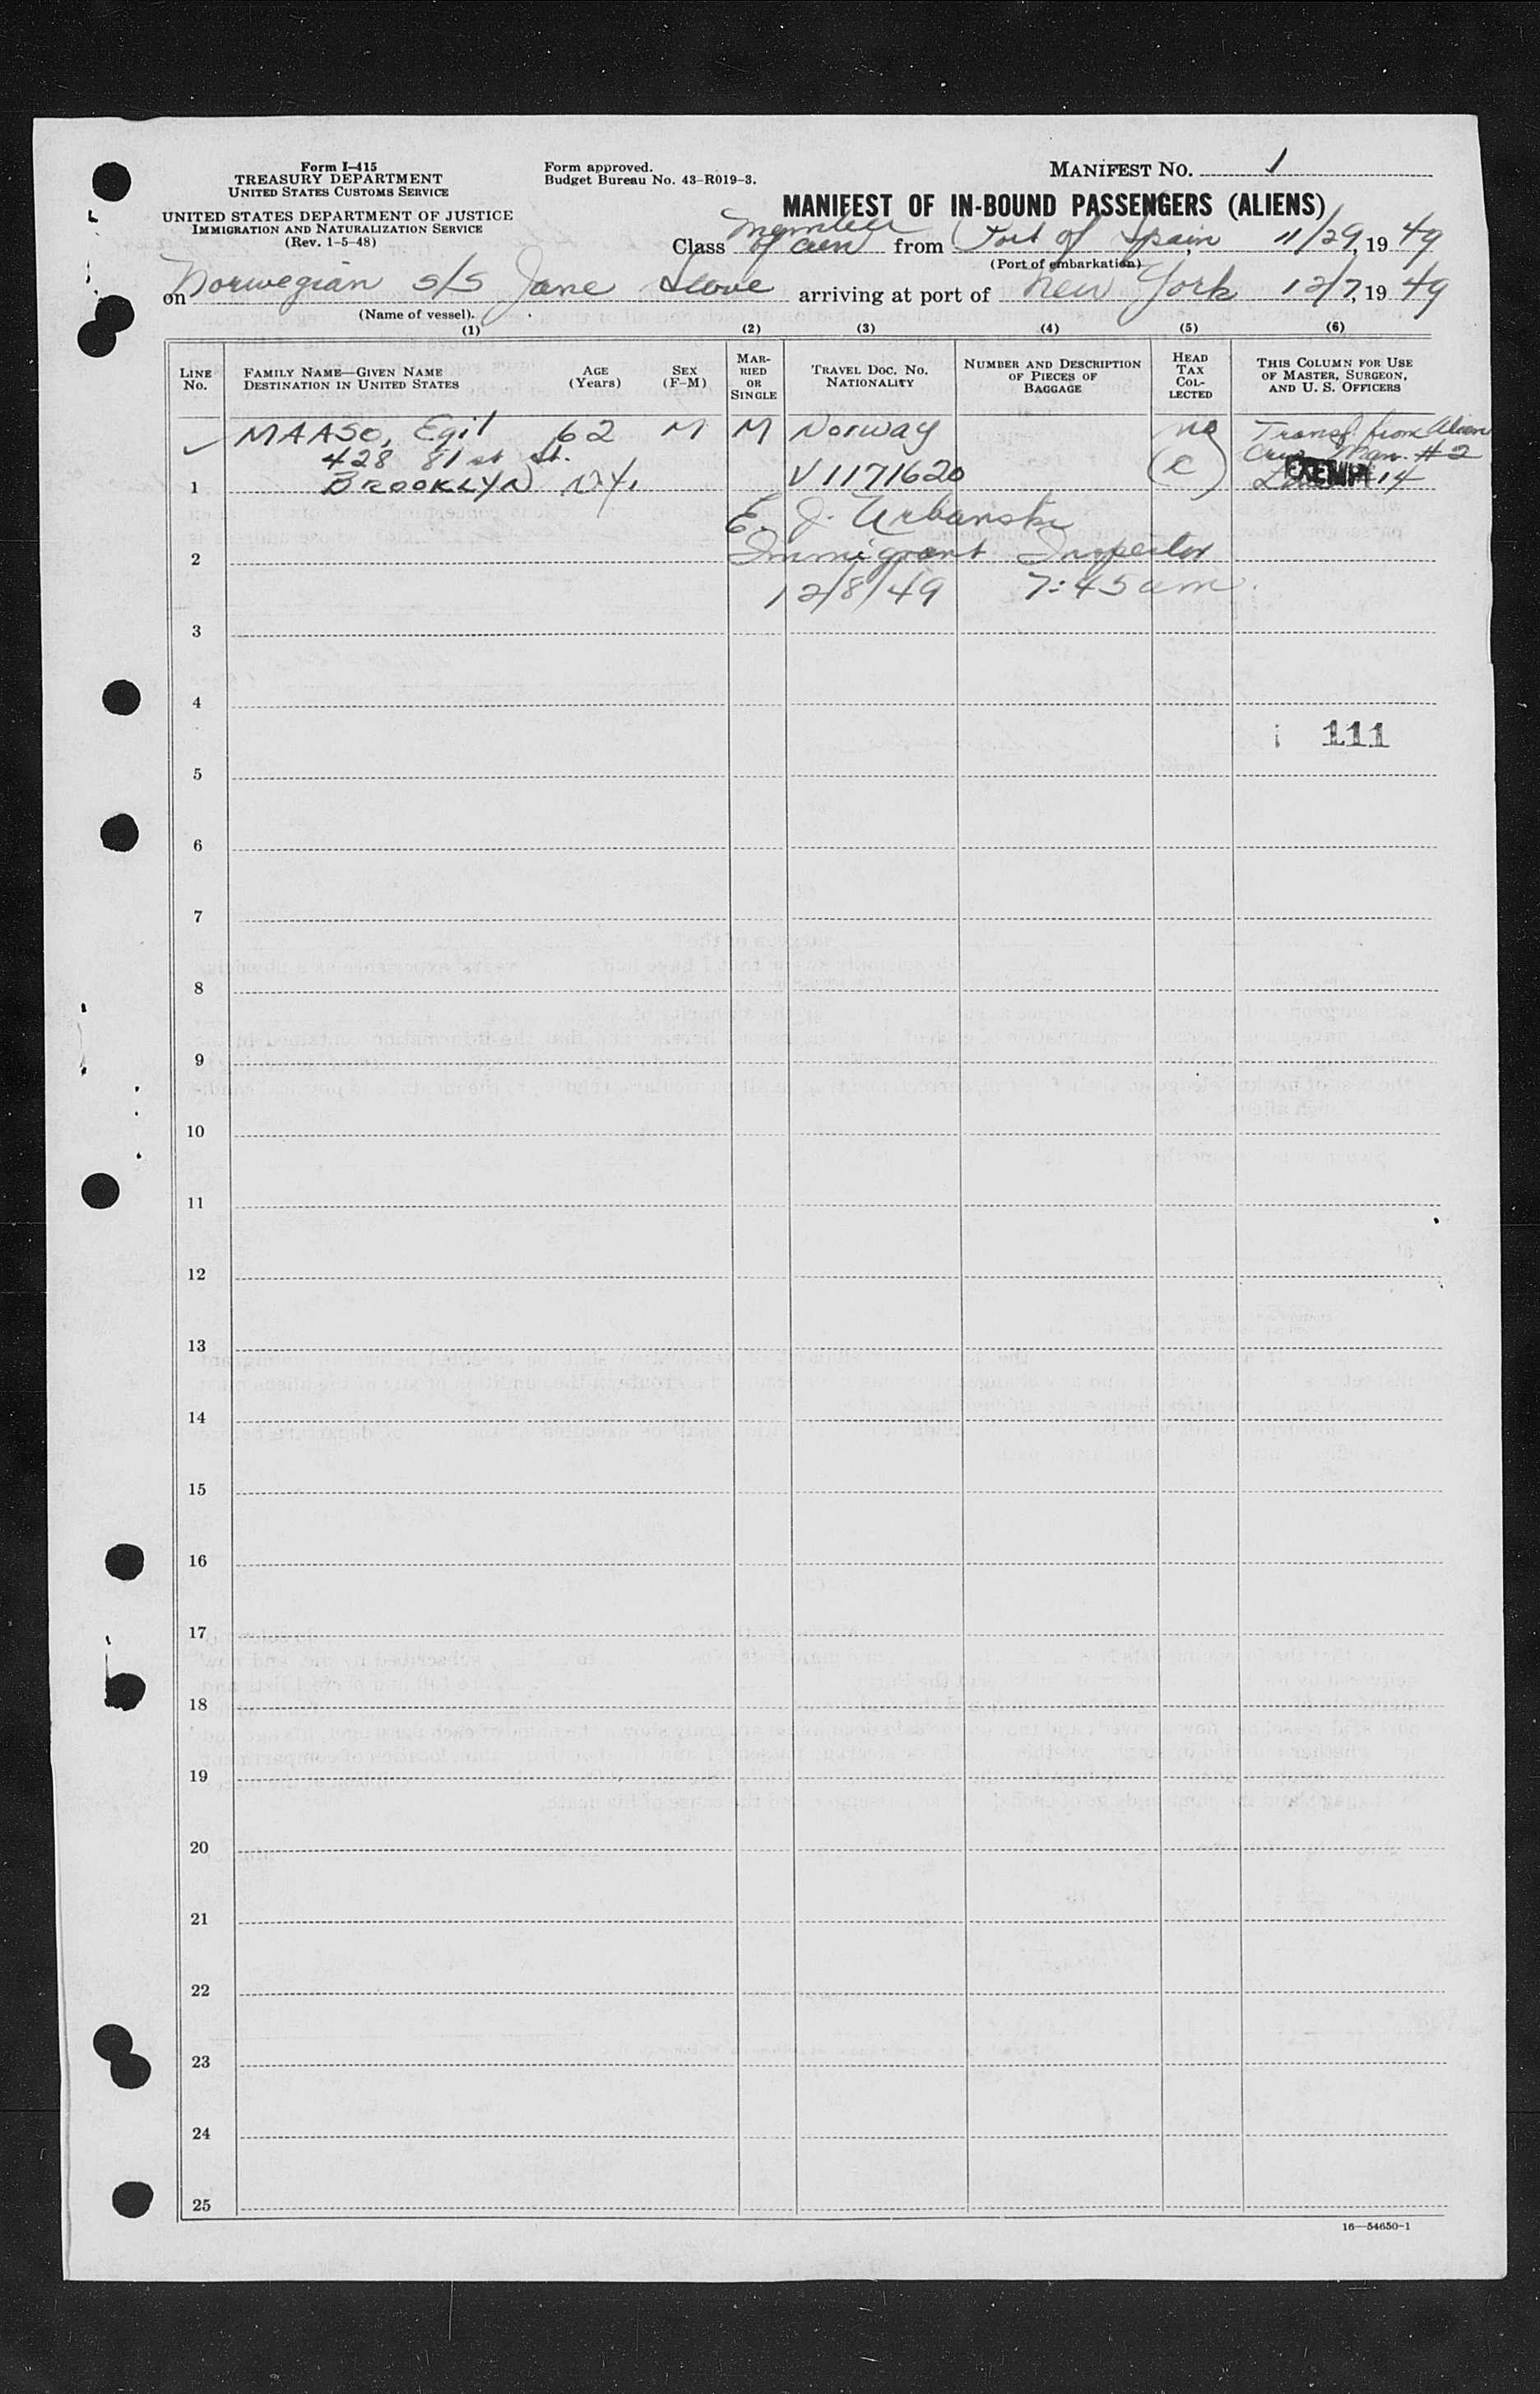 Form I-415
TREASURY DEPARTMENT
UNITED STATES CUSTOMS SERVICE
UNITED STATES DEPARTMENT OF JUSTICE
IMMIGRATION AND NATURALIZATION SERVICE
(Rev. 1-5-48)
Form approved.
Budget Bureau No. 43-R019-3.
MANIFEST NO. 1
MANIFEST OF IN-BOUND PASSENGERS (ALIENS)
Class member of crew from Port of Spain, 11/29, 1949
(Port of embarkation)
on Norwegian S/S Jane Stove arriving at port of New York 12/7, 1949
(Name of vessel)
(1) (2) (3) (4) (5) (6)
LINE No.
FAMILY NAME—GIVEN NAME
DESTINATION IN UNITED STATES
AGE (Years)
SEX (F-M)
MARRIED OR SINGLE
TRAVEL DOC. NO.
NATIONALITY
NUMBER AND DESCRIPTION OF PIECES OF BAGGAGE
HEAD TAX COLLECTED
THIS COLUMN FOR USE OF MASTER, SURGEON, AND U. S. OFFICERS
MAASO, Egil 62 M M Norway no Transf. from Alien
428 81st St. Crew Man. #2
1 BROOKLYN N.Y. V1171620 (C) EXEMPT 14
E. J. Urbanski
2 Immigrant Inspector
12/8/49 7:45 am.
3
4
111
5
6
7
8
9
10
11
12
13
14
15
16
17
18
19
20
21
22
23
24
25
16—54650-1